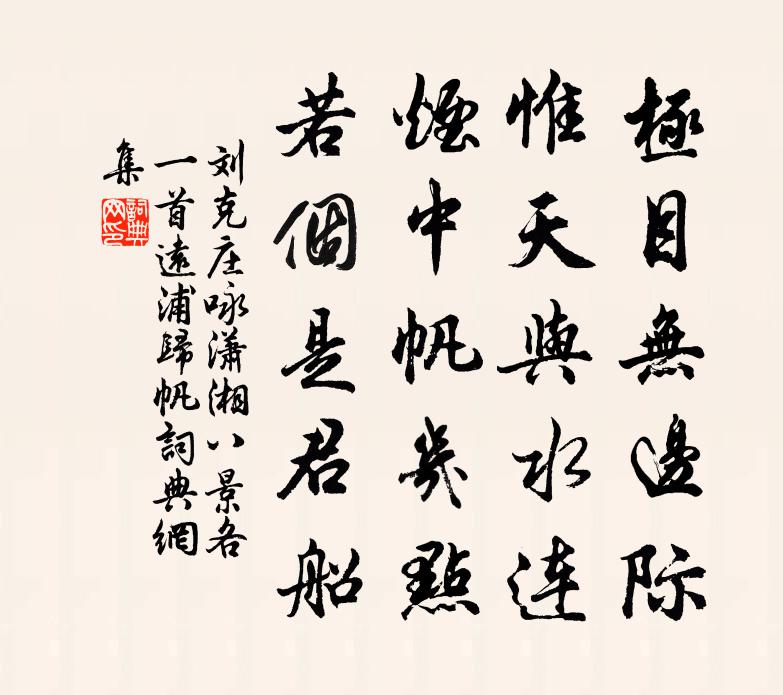 極目無邊際
惟天與水連
煙中帆幾點
若個是君船
刘克庄咏瀟湘八景各
一首遠浦歸帆詞典網
集
詞典
网印